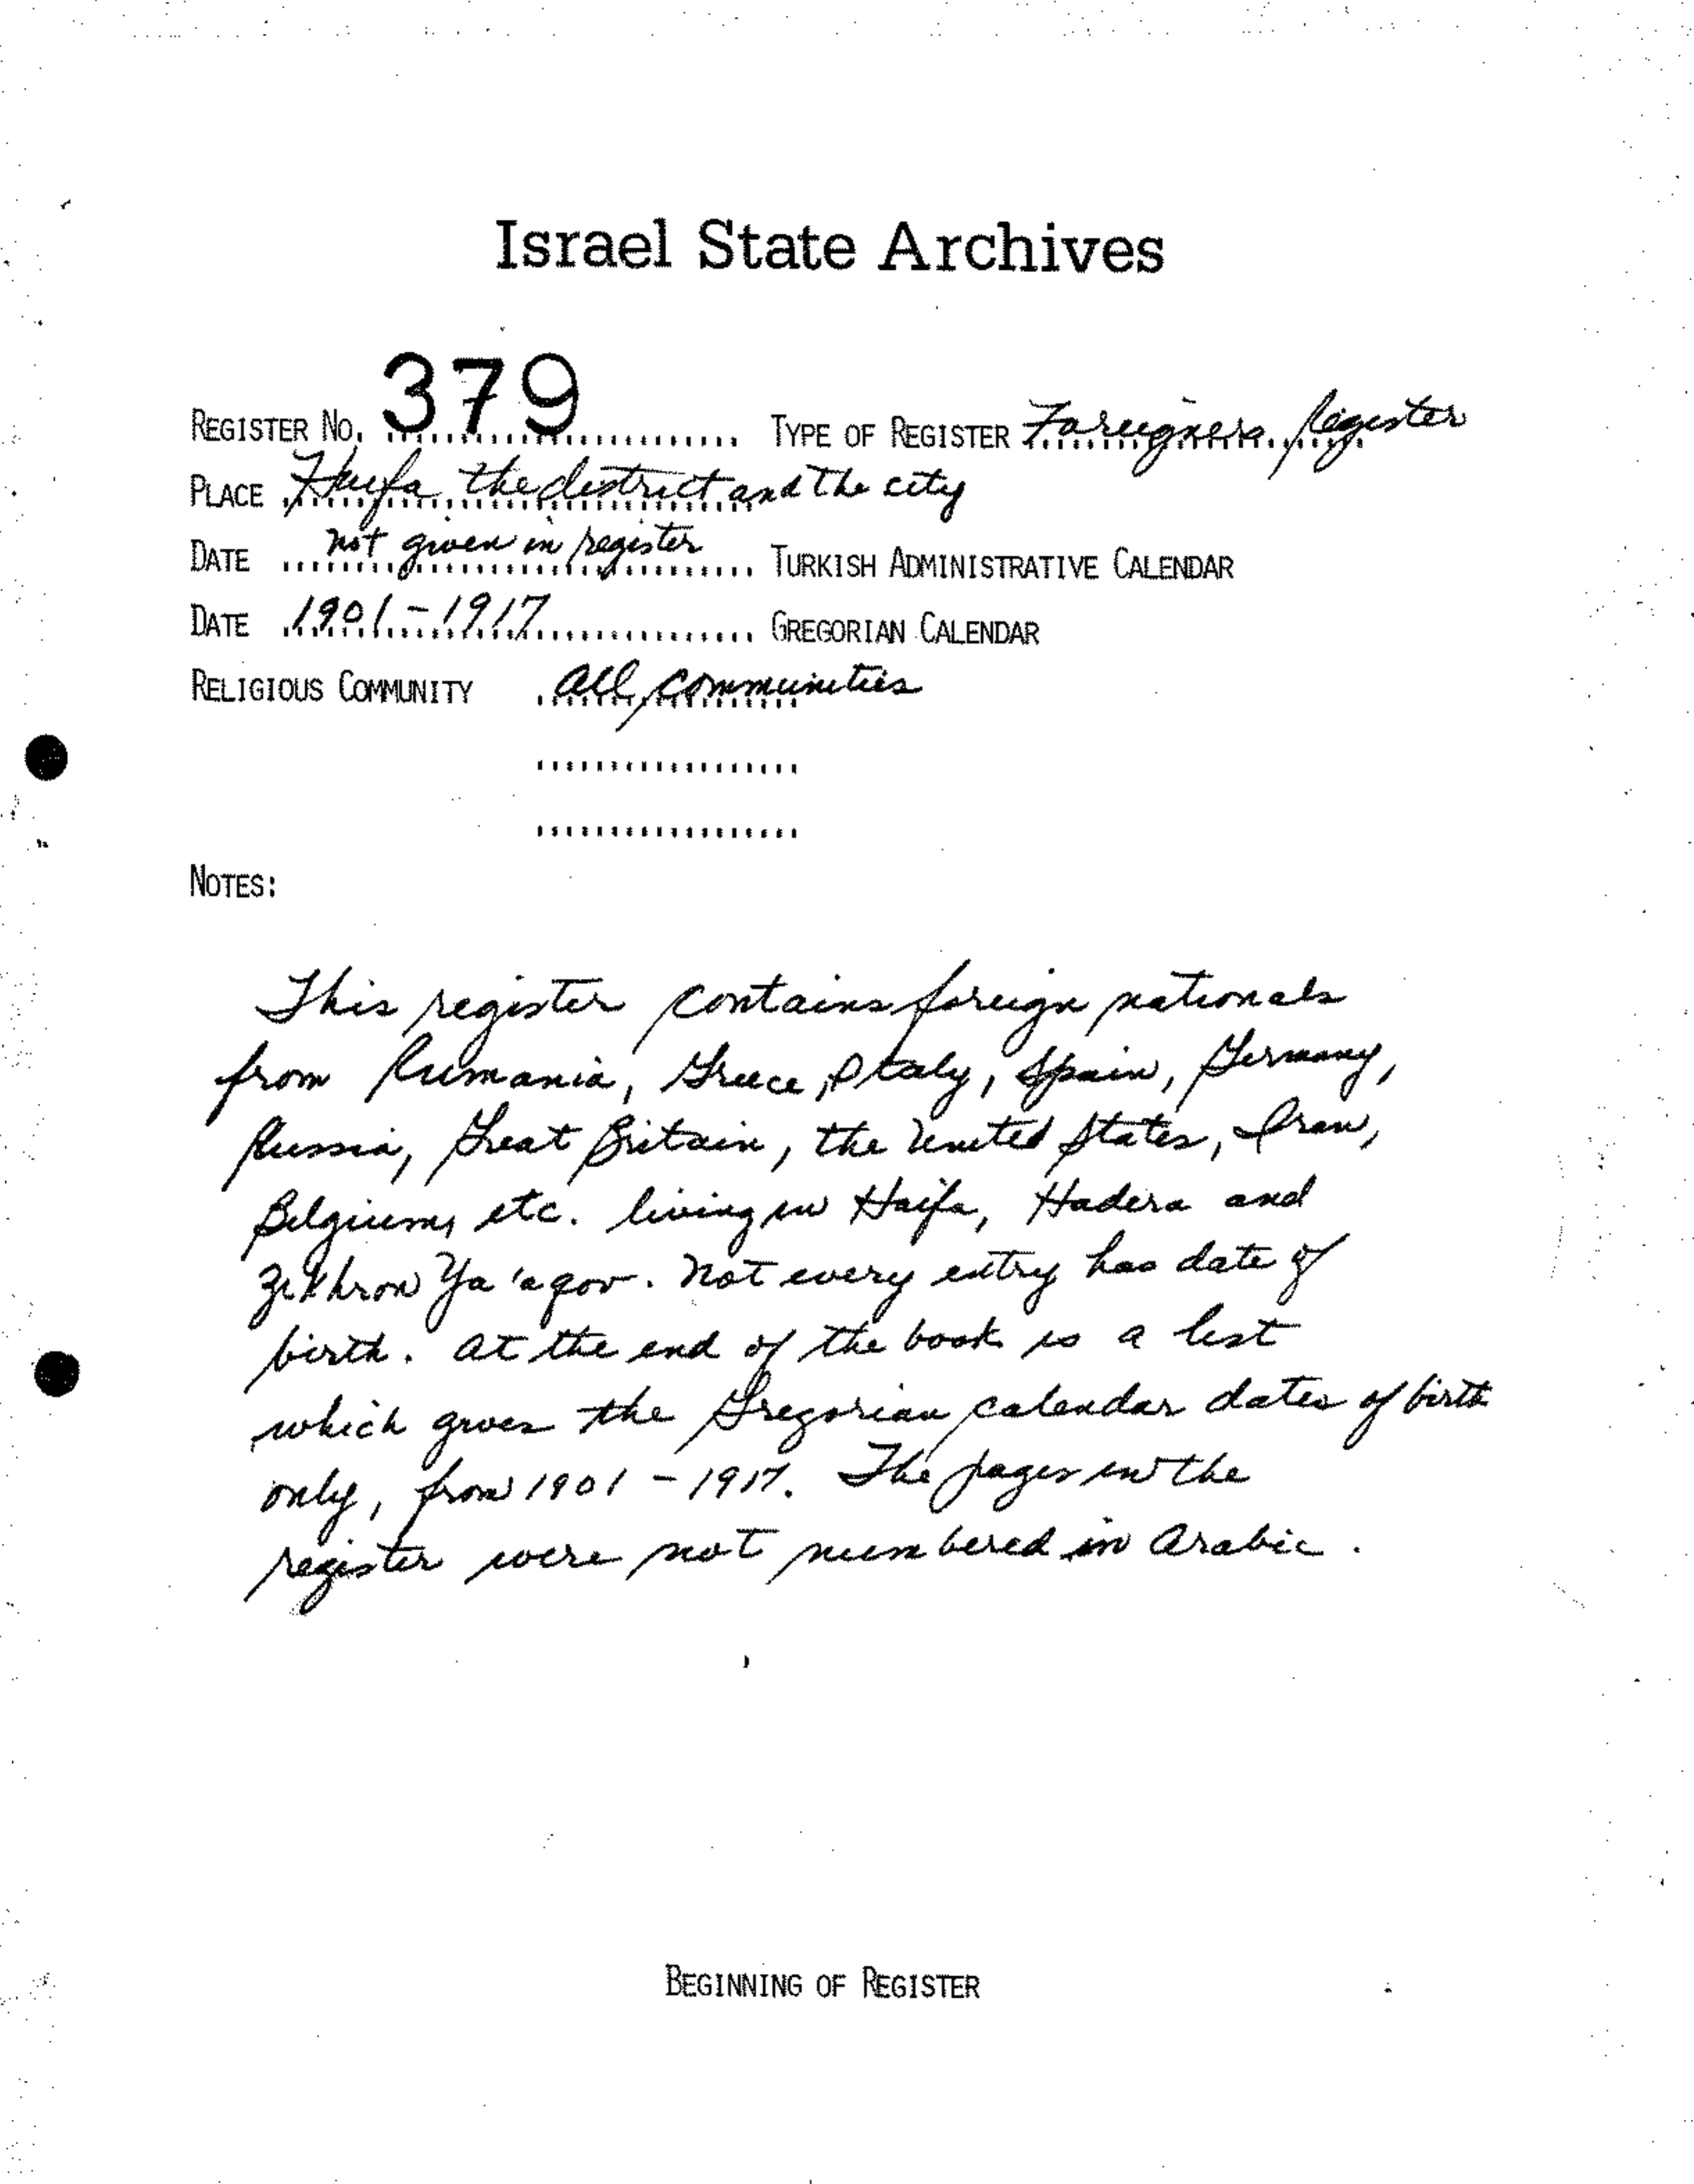 Israel State Archives
REGISTER NO. 379 TYPE OF REGISTER Foreigners Register
PLACE Haifa, the district and the city
DATE not given in register TURKISH ADMINISTRATIVE CALENDAR
DATE 1901-1917 GREGORIAN CALENDAR
RELIGIOUS COMMUNITY all communities
NOTES:
This register contains foreign nationals
from Rumania, Greece, Italy, Spain, Germany,
Russia, Great Britain, the United States, Iran,
Belgium, etc. living in Haifa, Hadera and
Zikhron Ya'aqov. Not every entry has date of
birth. At the end of the book is a list
which gives the Gregorian calendar dates of birth
only, from 1901 - 1917. The pages in the
register were not numbered in Arabic.
BEGINNING OF REGISTER